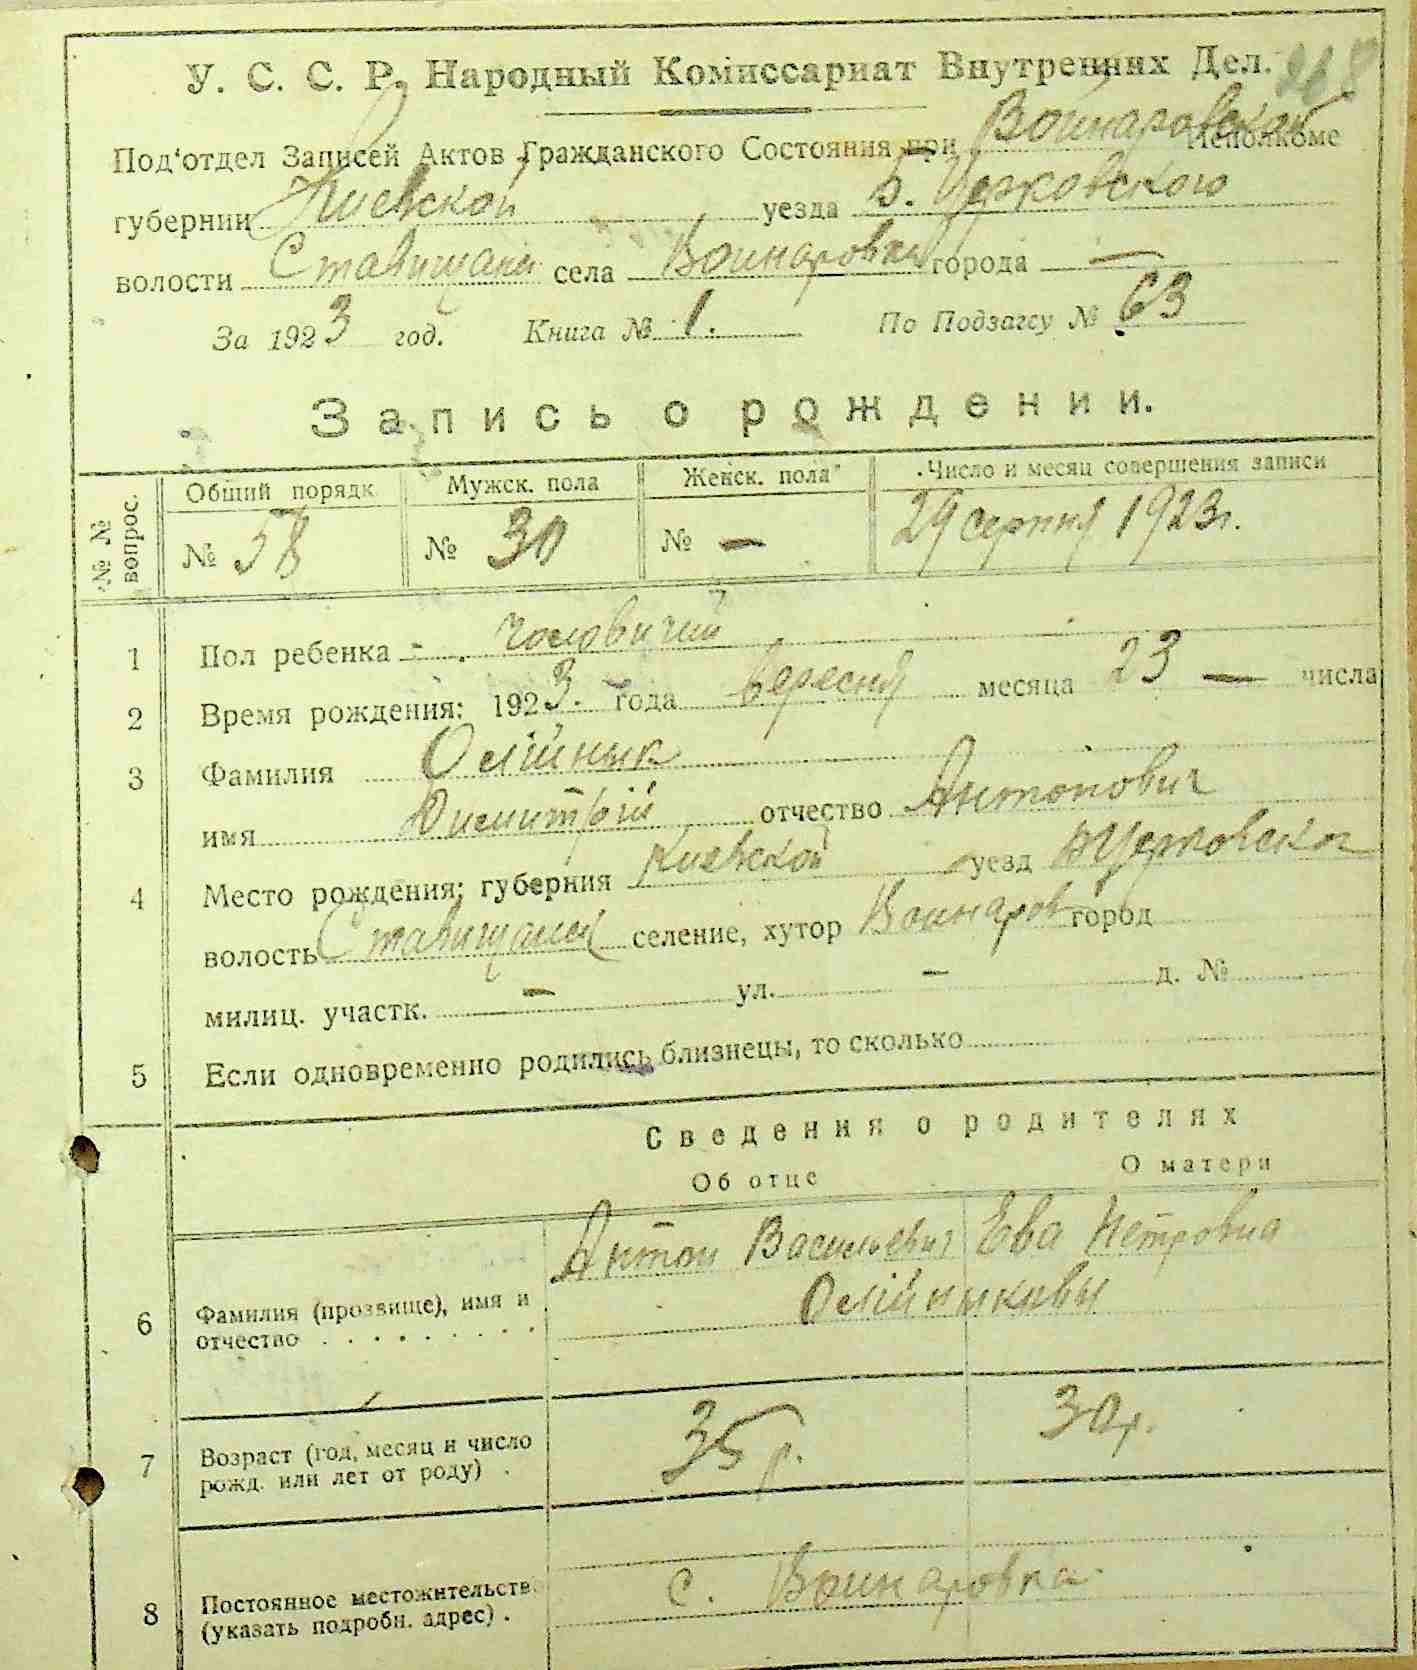 У. С. С. Р. Народный Комиссариат Внутренних Дел. 268
Под‘отдел Записей Актов Гражданского Состояния при Войнаровской Исполкоме
губернии Киевской уезда Б. Церковского
волости Ставищанск села Войнаровки города —
За 1923 год. Книга № 1. По Подзагсу № 63
Запись о рождении.
№ № вопрос. Общий порядк. Мужск. пола Женск. пола Число и месяц совершения записи
№ 58 № 30 № — 29 серпня 1923 г.
1 Пол ребенка - чоловичий
2 Время рождения: 1923. года вересня месяца 23 — числа
3 Фамилия Олійнык
имя Димитрій отчество Антонович
4 Место рождения: губерния Киевской уезд БЦерковской
волость Ставищанск селение, хутор Войнаров город
милиц. участк. — ул. — д. №
5 Если одновременно родились близнецы, то сколько
Сведения о родителях
Об отце О матери
Антон Васильевич Ева Петровна
Олійныковы
6 Фамилия (прозвище), имя и
отчество . . . . . . . . .
7 Возраст (год, месяц и число
рожд. или лет от роду) . 35 р. 30 р.
8 Постоянное местожительств
(указать подробн. адрес) . с. Войнаровка